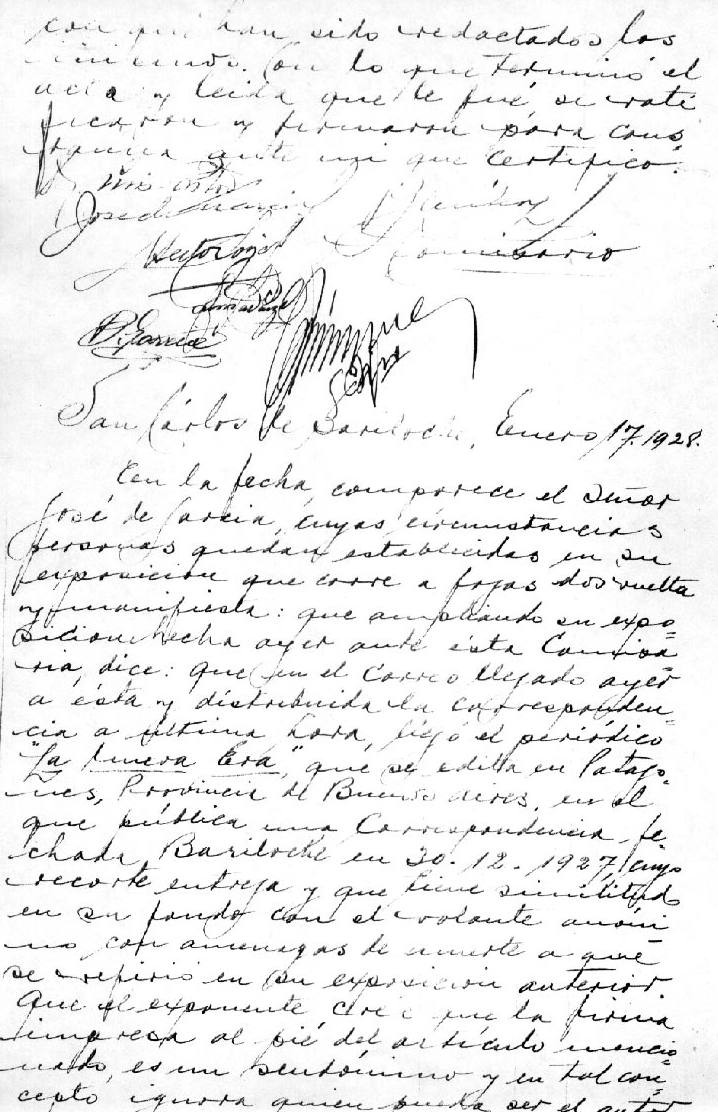 con que han sido redactados los
mismos. Con lo que terminó el
acta y leida que le fué, se rati
ficaron y firmaron para cons
tancia ante mi que certifico.
José de García
Hector
Comisario
D. García
San Cárlos de Bariloche, Enero 17.1928.
En la fecha, comparece el Señor
José de García, cuyas circunstancias
personas quedan establecidas en su
exposición que corre a fojas dos vuelta
y manifiesta: que ampliando su expo=
sicion hecha ayer ante ésta Comisa
ria, dice: que en el Correo llegado ayer
a ésta y distribuida la corresponden=
cia a última hora, llegó el periódico
"La Nueva Era", que se edita en Patago=
nes, Provincia de Buenos Aires, en el
que pública una Correspondencia fe
chada Bariloche en 30.12.1927, cuyo
recorte entrega y que tiene similitud
en su fondo con el volante anóni
mo con amenazas de muerte a que
se refirió en su exposición anterior
Que el exponente cree que la firma
impresa al pié del artículo mencio=
nado, es un seudónimo y en tal con=
cepto ignora quien pueda ser el autor